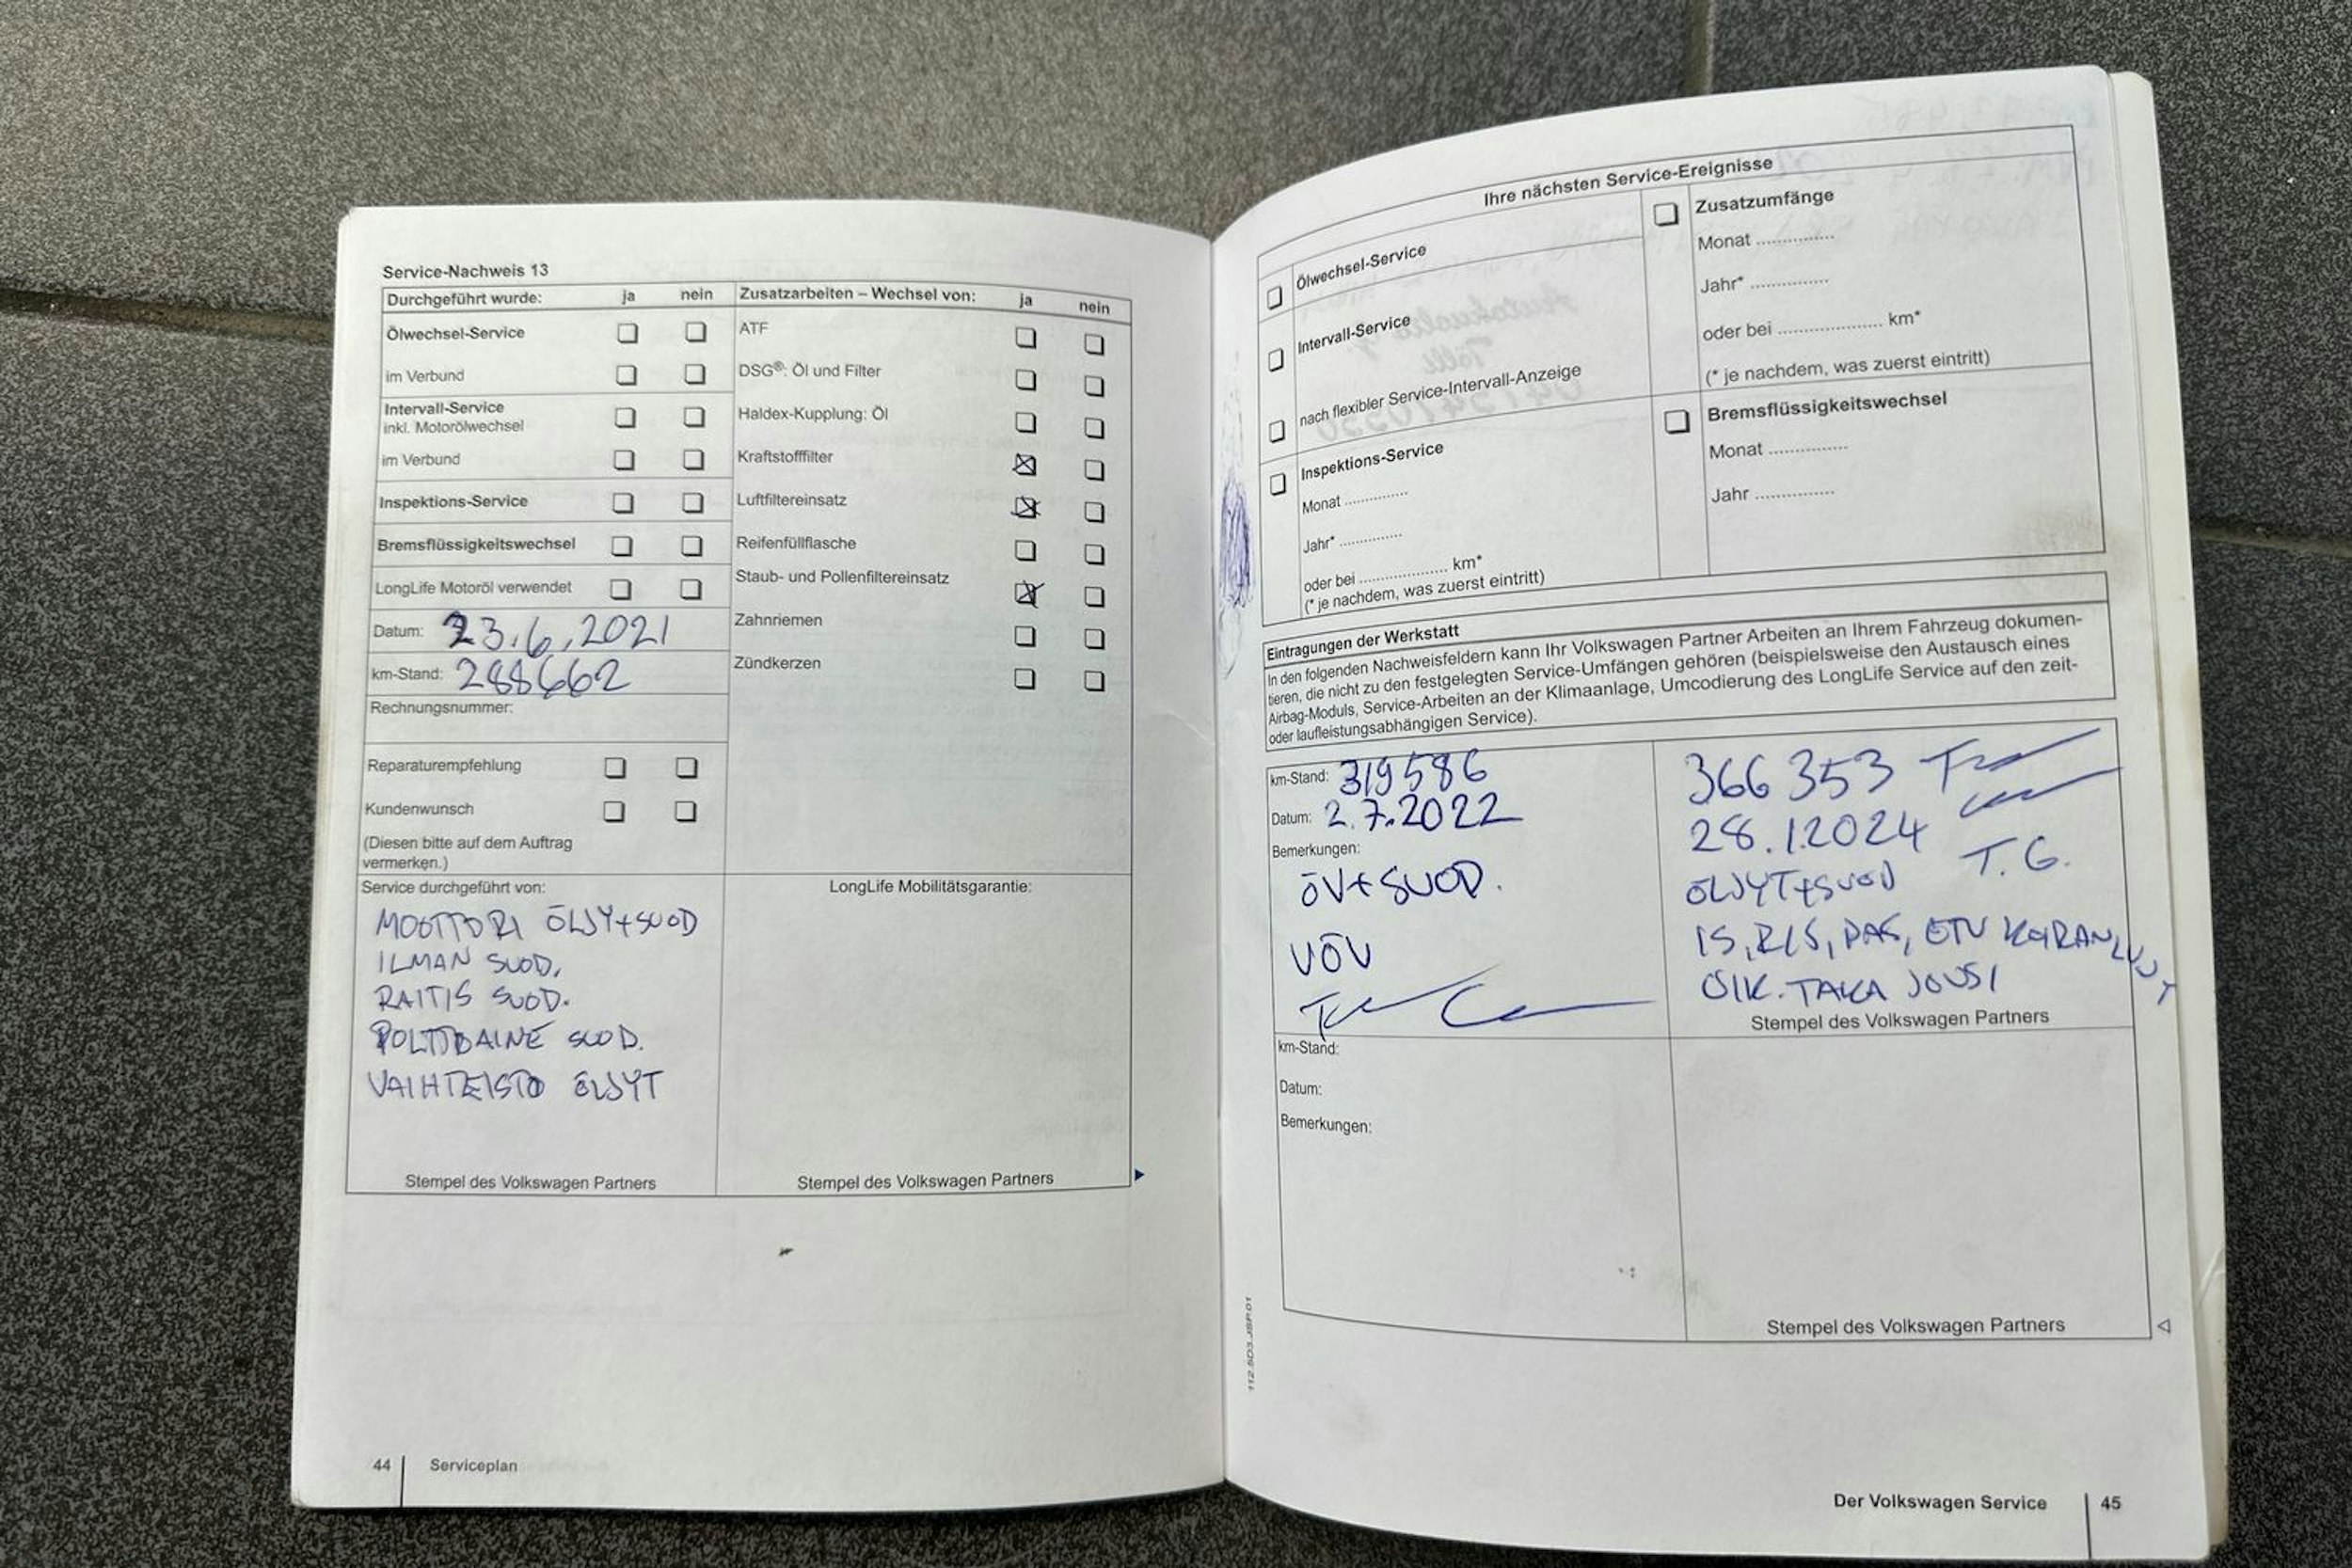 Service-Nachweis 13
Durchgeführt wurde: ja nein
Ölwechsel-Service
im Verbund
Intervall-Service
inkl. Motorölwechsel
im Verbund
Inspektions-Service
Bremsflüssigkeitswechsel
LongLife Motoröl verwendet
Datum: 23.6.2021
km-Stand: 288662
Rechnungsnummer:
Reparaturempfehlung
Kundenwunsch
(Diesen bitte auf dem Auftrag
vermerken.)
Zusatzarbeiten – Wechsel von: ja nein
ATF
DSG®: Öl und Filter
Haldex-Kupplung: Öl
Kraftstofffilter
Luftfiltereinsatz
Reifenfüllflasche
Staub- und Pollenfiltereinsatz
Zahnriemen
Zündkerzen
Service durchgeführt von:
MOOTTORI ÖLJY+SUOD
ILMAN SUOD,
RAITIS SUOD.
POLTTOAINE SUOD.
VAIHTEISTO ÖLJYT
Stempel des Volkswagen Partners
LongLife Mobilitätsgarantie:
Stempel des Volkswagen Partners
44 Serviceplan
Ihre nächsten Service-Ereignisse
Ölwechsel-Service
Intervall-Service
nach flexibler Service-Intervall-Anzeige
Inspektions-Service
Monat ..............
Jahr* ..............
oder bei .................... km*
(* je nachdem, was zuerst eintritt)
Zusatzumfänge
Monat ..............
Jahr* ..............
oder bei .................... km*
(* je nachdem, was zuerst eintritt)
Bremsflüssigkeitswechsel
Monat ..............
Jahr ..............
Eintragungen der Werkstatt
In den folgenden Nachweisfeldern kann Ihr Volkswagen Partner Arbeiten an Ihrem Fahrzeug dokumen-
tieren, die nicht zu den festgelegten Service-Umfängen gehören (beispielsweise den Austausch eines
Airbag-Moduls, Service-Arbeiten an der Klimaanlage, Umcodierung des LongLife Service auf den zeit-
oder laufleistungsabhängigen Service).
km-Stand: 319586
Datum: 2.7.2022
Bemerkungen:
ÖV+SUOD.
VÖV
366 353
28.1.2024
ÖLJYT+SUOD T.G.
IS, R/S, PAS, ETU
OIK. TAKA JOUSI
Stempel des Volkswagen Partners
km-Stand:
Datum:
Bemerkungen:
Stempel des Volkswagen Partners
112.5D3.JSP.01
Der Volkswagen Service 45